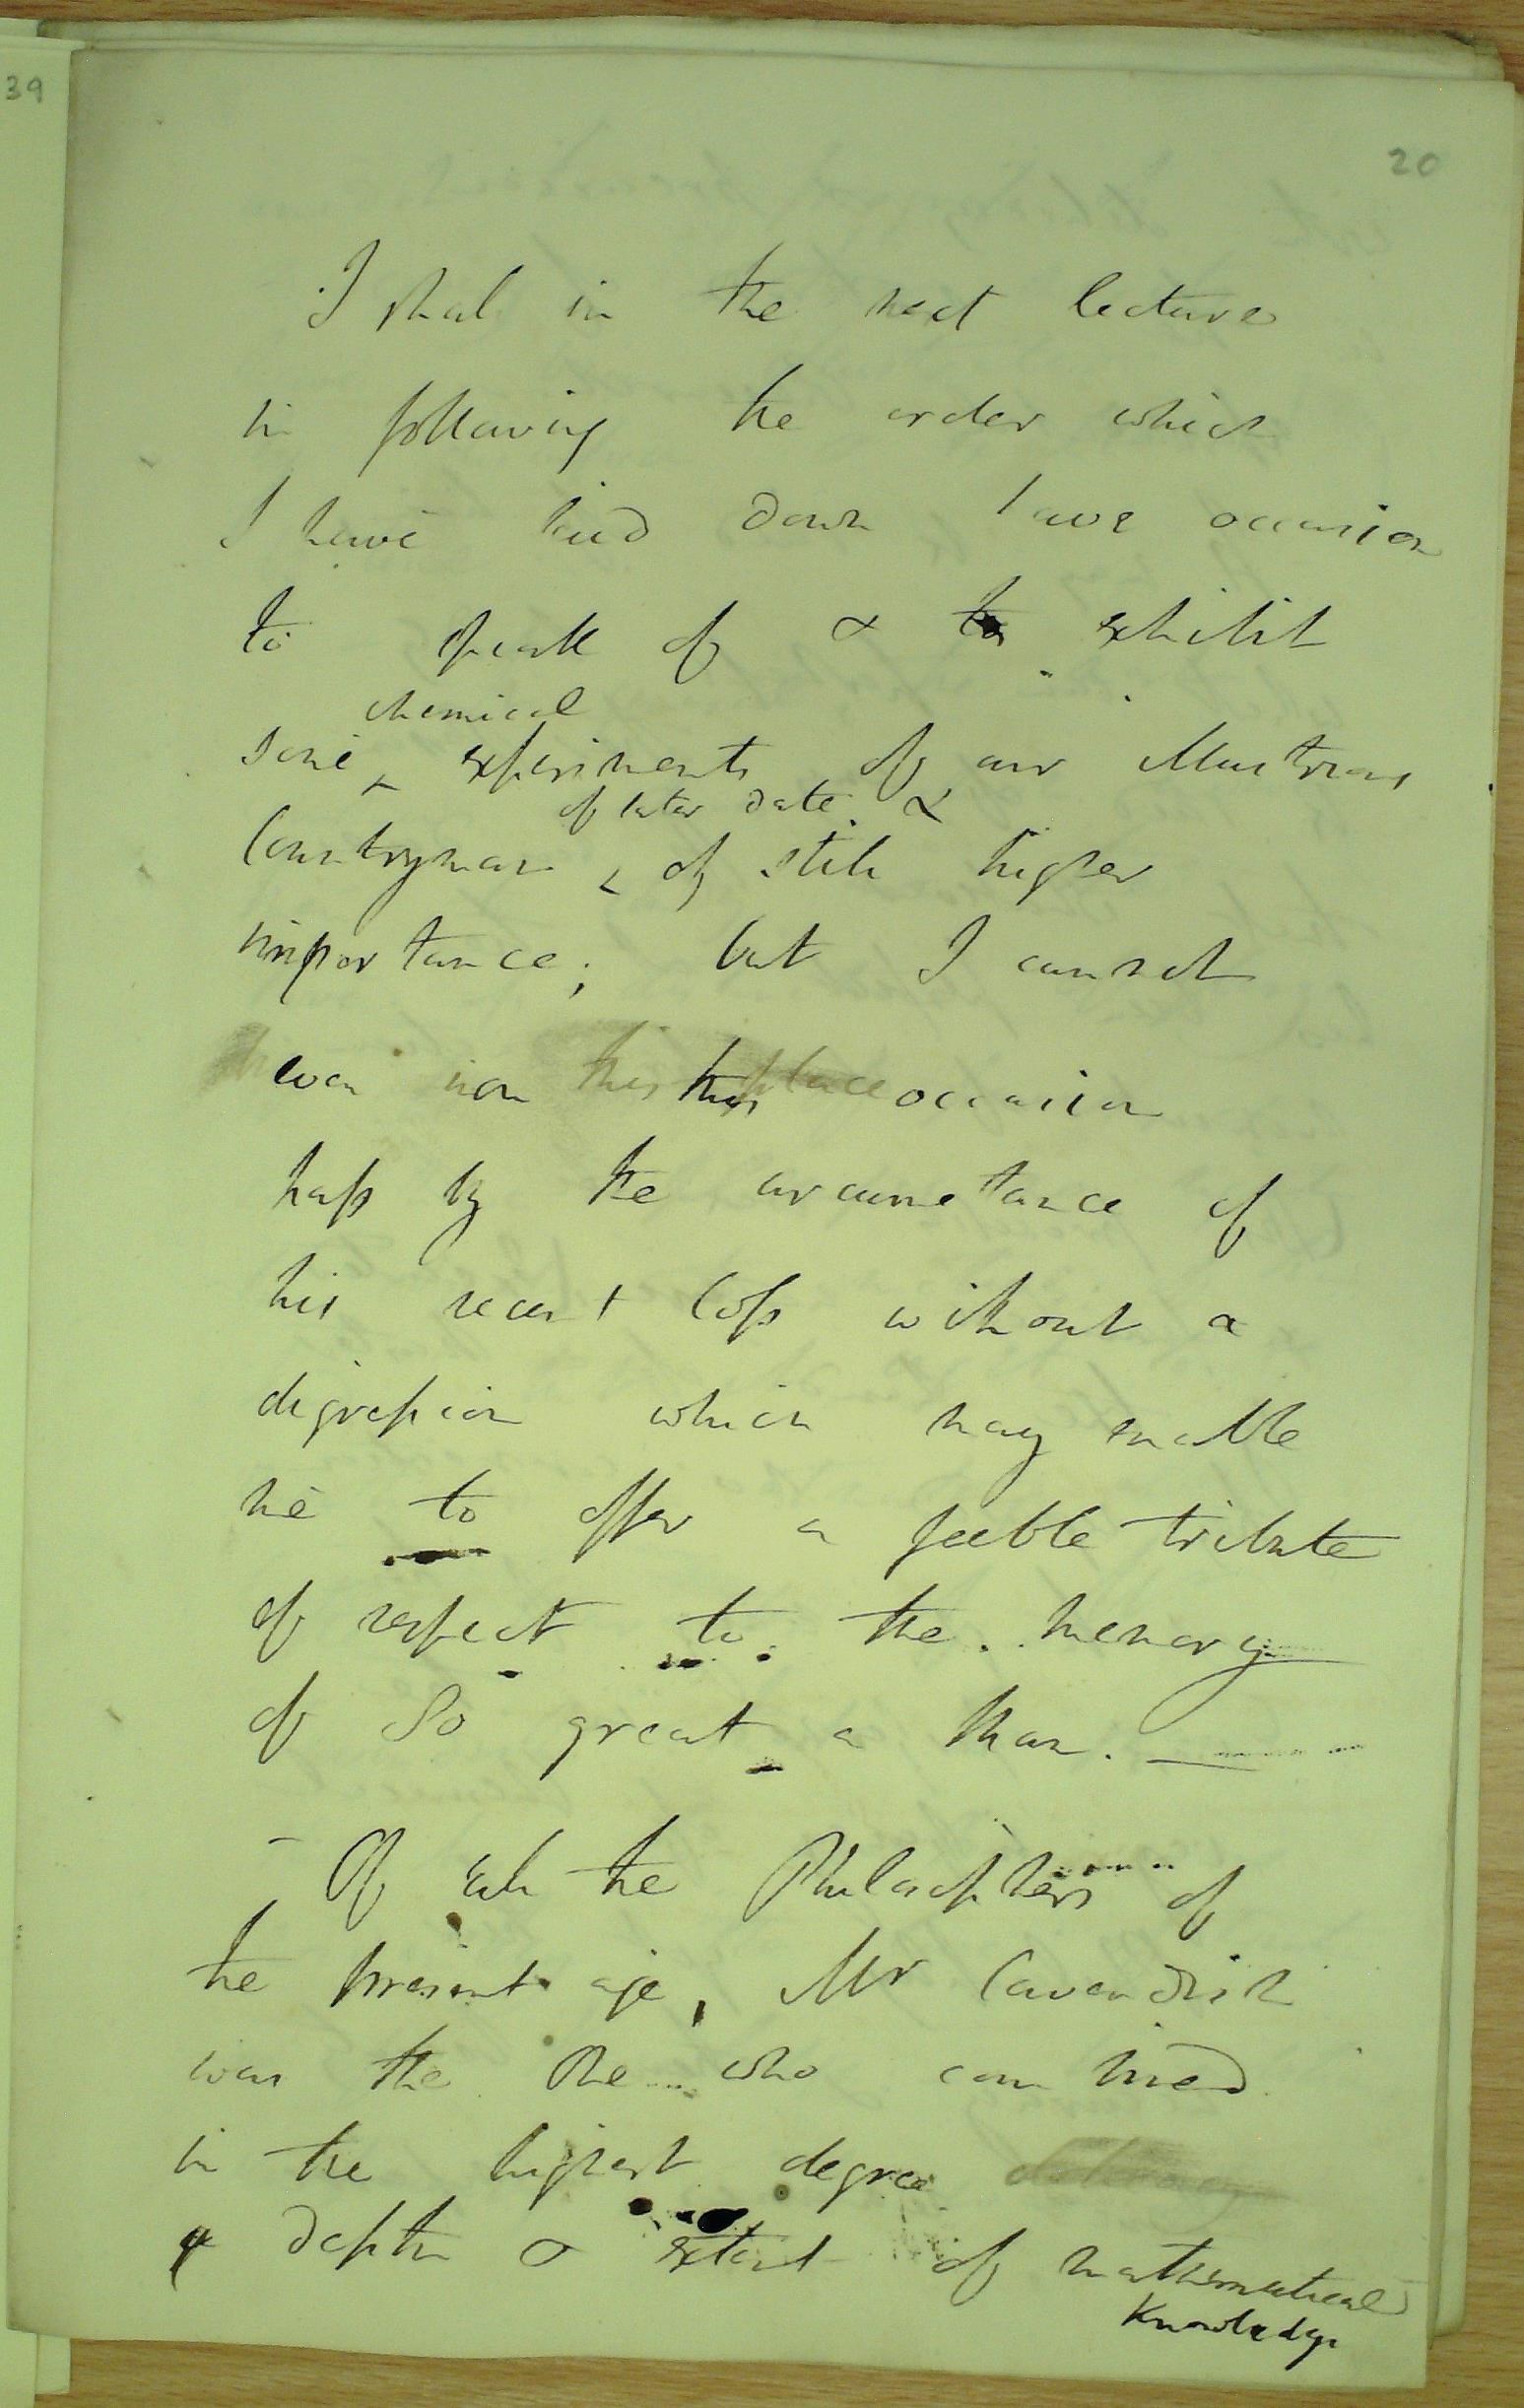 39
20
I shal in the next lecture
in following the order which
I have laid down have occasion
to speak of & to exhibit
chemical
some ^ experiments of our illustrious
of later date &
Countryman ^ of still higher
importance; but I cannot
even on this this place occasion
pass by the circumstance of
his recent loss without a
digression which may enable
me to offer a feeble tribute
of respect to the memory
of So great a Man. —
- Of all the Philosophers of
the present age, Mr Cavendish
was the one who combined
in the highest degree
a depth & extent of mathematical
Knowledge